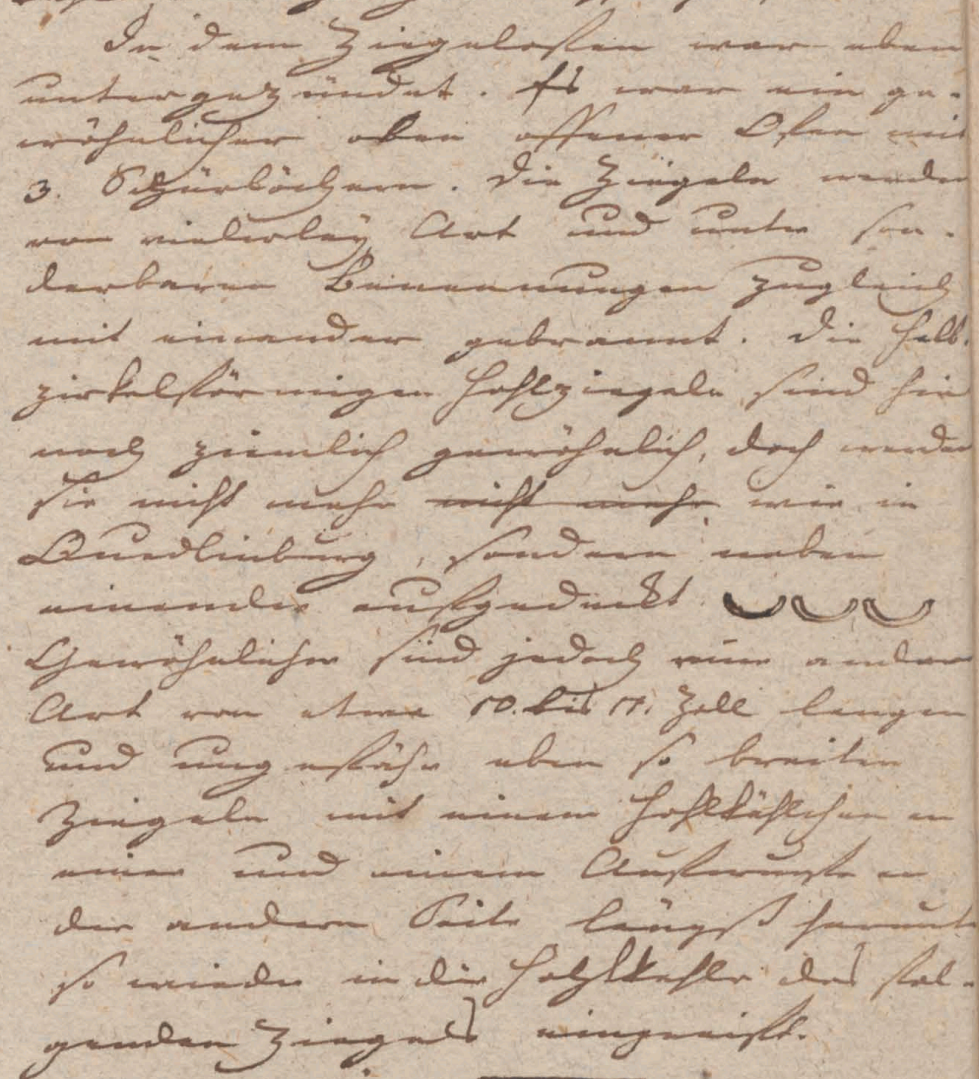 In dem Ziegelofen war eben
untergezündet. Es war ein ge-
wöhnlicher oben offener Ofen mit
3. Schürlöchern. Die Ziegeln werden
von vielerley Art und unter son-
derbaren Benennungen zugleich
mit einander gebrannt. Die halb-
zirkelförmigen Hohlziegeln sind hie
noch ziemlich gewöhnlich, doch werden
sie nicht mehr nicht mehr wie in
Quedlinburg, sondern neben
einander aufgedeckt
Gewöhnlicher sind jedoch eine andere
Art von etwa 10. bis 11. Zoll langen
und ungefähr eben so breiten
Ziegeln mit einem Hohlkehlchen an
einer und einem an
der andern Seite längst herunt
so wieder in die Hohlkehle des fol-
genden Ziegels eingreift.